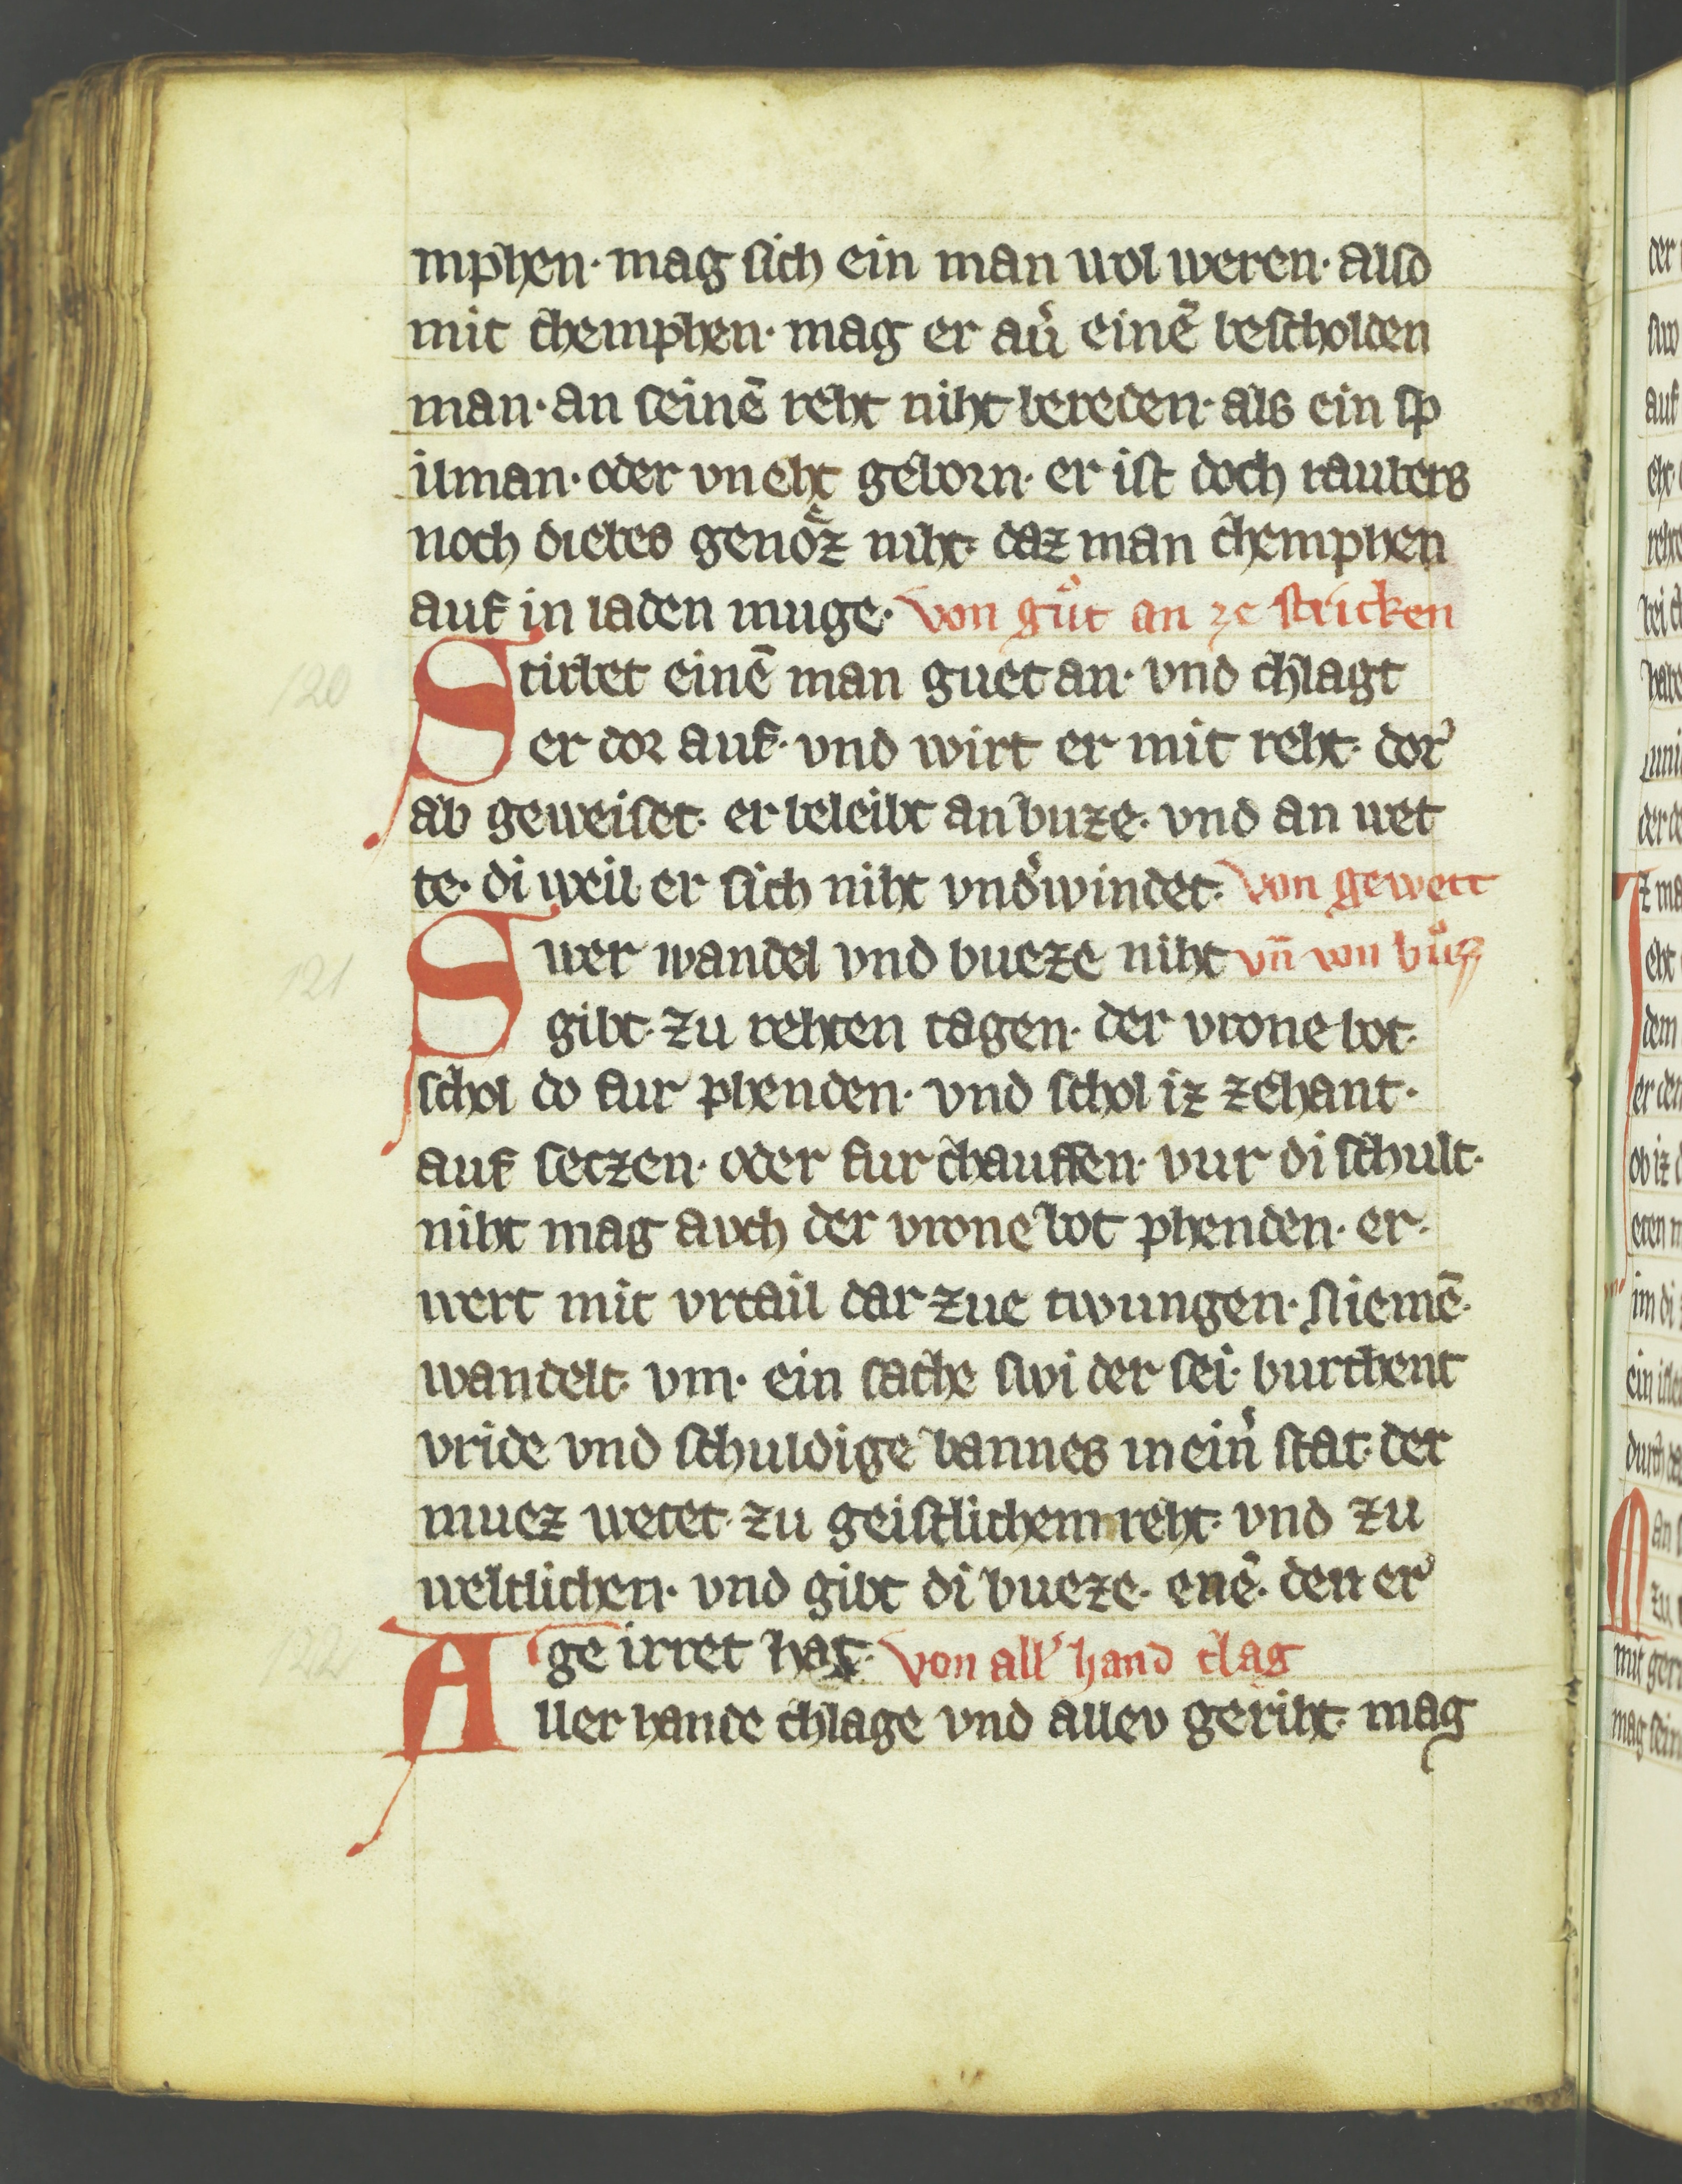 mphen· mag sich ein man wol weren· alſo
mit chemphen· mag er aú einē beſcholden
man· an ſeinē reht niht bereden· als ein ſp
ilman· oder vneht geborn· er iſt doch raubers
noch diebes genoͤz niht· daz man chemphen
auf in laden muge· von guͤt an ze ſtricken
Stirbet einē man guet an· vnd chlagt
er dor auf· vnd wirt er mit reht· dor
ab geweiſet· er beleibt an buze· vnd an wet
te· di weil er ſich niht vnd'windet· von gewett
Swer wandel vnd bueze niht vn̄ von buͤzz
gibt· zu rehten tagen· der vrone bot·
ſchol do fur phenden· vnd ſchol iz zehant·
auf ſeczen· oder fur chauffen· vur di ſchult·
niht mag avch der vrone bot phenden· er·
wert mit vrtail dar zue twungen· Niemē·
wandelt· vm· ein ſache ſwi der ſei· burchent
vride vnd ſchuldige bannes in ein' ſtat· der
muez wetet· zu geiſtlichem reht· vnd zu
weltlichen· vnd gibt di bueze· enē· den er
ge irret hat· von all' hand clag
Aller hande chlage vnd allev geriht· mag
120
121
122